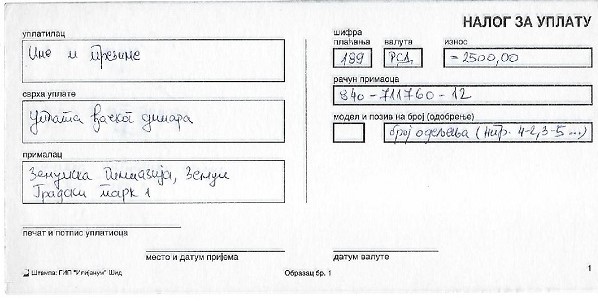 НАЛОГ ЗА УПЛАТУ
уплатилац
Име и презиме
сврха уплате
Уплата ђачког динара
прималац
Земунска Гимназија, Земун
Градски парк 1
печат и потпис уплатиоца
место и датум пријема
шифра
плаћања
валута
износ
189
РСД.
=2500,00
рачун примаоца
840-711760-12
модел и позив на број (одобрење)
број одељења (нпр. 4-2,3-5 ...)
датум валуте
Штампа: ГИП "Илијанум" Шид
Образац бр. 1
1